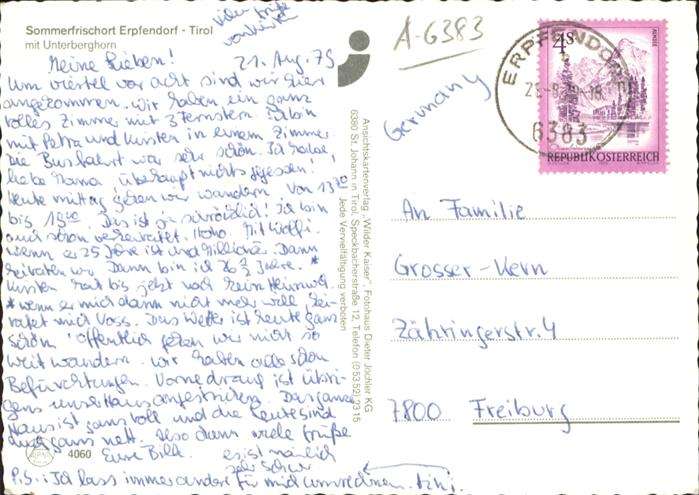 Sommerfrischort Erpfendorf - Tirol
mit Unterberghorn
viele Grüße
Meine Lieben! 21. Aug. 79
Um viertel vor acht sind wir hier
angekommen. Wir haben ein ganz
tolles Zimmer mit 3 Fenstern. Ich bin
mit Petra und Kirsten in einem Zimmer
Die Busfahrt war sehr schön. Ich habe,
liebe Mama, überhaupt nichts
heute mittag gehen wir wandern. Von 13
bis Das ist ja Ich bin
auch schon verheiratet. Hoho. Mit Wolfi.
wenn er 25 Jahre ist und Millionär. Dann
heiraten wir. Dann bin ich 26 Jahre. *
Kirsten hat bis jetzt noch kein Heimweh.
* wenn er mich dann nicht mehr will, hei-
ratet mich Voss. Das Wetter ist heute ganz
schön. Öffentlich gehen wir nicht so
weit wandern. Wir haben alle schon
Befürchtungen. Vorne drauf ist übri-
gens unser Haus angestrichen. Das ganze
Haus ist ganz toll und die Leute sind
auch ganz nett. Also dann viele Grüße
Eure es ist nämlich
sehr schwer
P.S.: Ich lass immer andere für mich umrechnen.
4060
Ansichtskartenverlag „Wilder Kaiser", Fotohaus Dieter Jöchler KG
6380 St. Johann in Tirol, Speckbacherstraße 12, Telefon (05352) 2315
Jede Vervielfältigung verboten
A-6383
Germany
ERPFENDORF
6383
4 S
REPUBLIK ÖSTERREICH
An Familie
Grosser-Kern
Zähringerstr. 4
7800 Freiburg